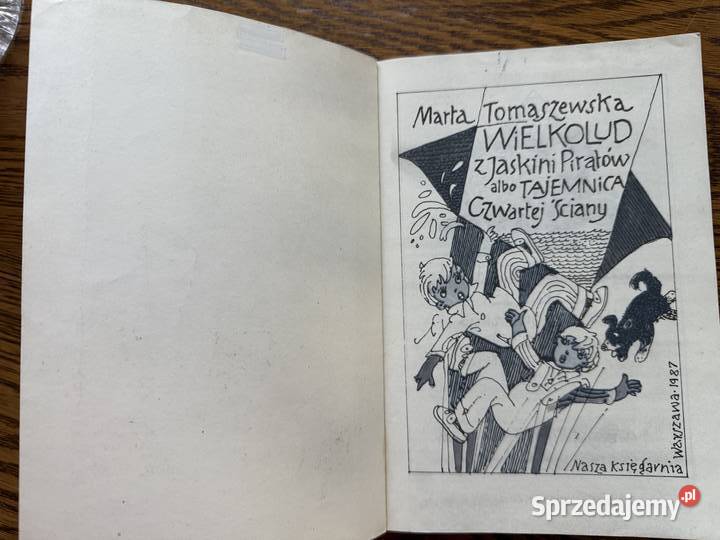 Marta Tomaszewska
WIELKOLUD
z Jaskini Piratów
albo TAJEMNICA
Czwartej Ściany
Warszawa·1987
Nasza Księgarnia
Sprzedajemy.pl